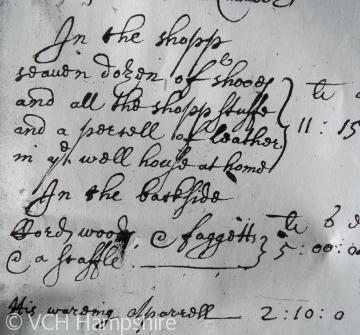 In the shopp
seaven dozen of shooes
and all the shopp stuffe
and a persell of leather
in ye well house at home
li s
11 : 15
In the backside
Cordwood & faggetts
& a scaffle
li s d
5 : 00 : 00
His wareing Aparrell 2 : 10 : 0
© VCH Hampshire